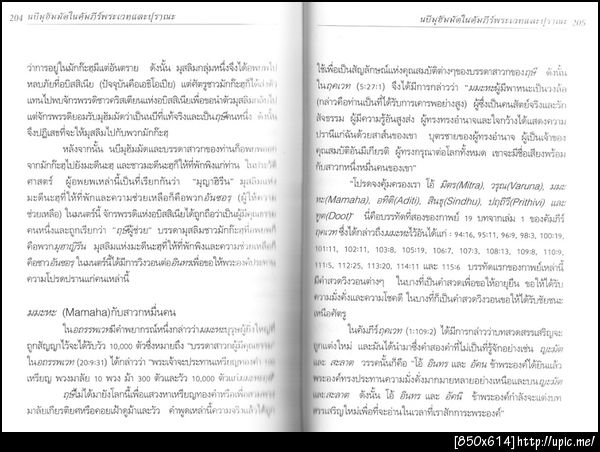 204 นบีมุฮัมมัดในคัมภีร์พระเวทและปุราณะ
ว่าการอยู่ในมักก๊ะฮฺมีแต่อันตราย ดังนั้น มุสลิมกลุ่มหนึ่งจึงได้อพยพไป
หลบภัยที่อบิสสิเนีย (ปัจจุบันคือเอธิโอเปีย) แต่ศัตรูชาวมักก๊ะฮฺได้ส่งตัว
แทนไปพบจักรพรรดิชาวคริสเตียนแห่งอบิสสิเนียเพื่อขอนำตัวมุสลิมกลับไป
แต่จักรพรรดิยอมรับมุฮัมมัดว่าเป็นนบีที่แท้จริงและเป็นฤษีคนหนึ่ง ดังนั้น
จึงปฏิเสธที่จะให้มุสลิมไปกับพวกมักก๊ะฮฺ
หลังจากนั้น นบีมุฮัมมัดและบรรดาสาวกของท่านก็อพยพออก
จากมักก๊ะฮฺไปยังมะดีนะฮฺ และชาวมะดีนะฮฺก็ให้ที่พักพิงแก่ท่าน ในประวัติ
ศาสตร์ ผู้อพยพเหล่านี้เป็นที่เรียกกันว่า "มุญาฮิรีน" มุสลิมแห่ง
มะดีนะฮฺที่ให้ที่พักและความช่วยเหลือก็คือพวกอันซอรฺ (ผู้ให้ความ
ช่วยเหลือ) ในมนตร์นี้ จักรพรรดิแห่งอบิสสิเนียได้ถูกถือว่าเป็นผู้มีคุณธรรมคน
หนึ่งและถูกเรียกว่า "ฤษีผู้ช่วย" บรรดามุสลิมชาวมักก๊ะฮฺที่อพยพ
คือพวกมุฮาญิรีน มุสลิมแห่งมะดีนะฮฺที่ให้ที่พักพิงและความช่วยเหลือก็
คือชาวอันซอรฺ ในมนตร์นี้ได้มีการวิงวอนต่ออินทรเพื่อขอให้พระองค์ประทาน
ความโปรดปรานแก่คนเหล่านี้
มมะหะ (Mamaha)กับสาวกหมื่นคน
ในอถรรพเวทมีคำพยากรณ์หนึ่งกล่าวว่ามมะหะบุรุษผู้ยิ่งใหญ่ที่
ถูกสัญญาไว้จะได้รับวัว 10,000 ตัวซึ่งหมายถึง "บรรดาสาวกผู้มีคุณธรรม"
ในอถรรพเวท (20:9:31) ได้กล่าวว่า "พระเจ้าจะประทานเหรียญทองคำ 100
เหรียญ พวงมาลัย 10 พวง ม้า 300 ตัวและวัว 10,000 ตัวแก่มมะหะฤษี"
ฤษีไม่ได้มายังโลกนี้เพื่อแสวงหาเหรียญทองคำหรือเพื่อสวมพวง
มาลัยเกียรติยศหรือคอยเฝ้าดูม้าและวัว คำพูดเหล่านี้ความจริงแล้วได้ถูก
นบีมุฮัมมัดในคัมภีร์พระเวทและปุราณะ 205
ใช้เพื่อเป็นสัญลักษณ์แห่งคุณสมบัติต่างๆของบรรดาสาวกของฤษี ดังนั้น
ในฤคเวท (5:27:1) จึงได้มีการกล่าวว่า "มมะหะผู้มีพาหนะเป็นวงล้อ
(กล่าวคือท่านเป็นที่ได้รับการเคารพอย่างสูง) ผู้ซึ่งเป็นคนสัตย์จริงและรัก
สัจธรรม ผู้มีความรู้อันสูงส่ง ผู้ทรงอำนาจและใจกว้างได้แสดงความ
ปรานีแก่ฉันด้วยสาส์นของเขา บุตรชายของผู้ทรงอำนาจ ผู้เป็นเจ้าของ
คุณสมบัติอันมีเกียรติ ผู้ทรงกรุณาต่อโลกทั้งหมด เขาจะมีชื่อเสียงพร้อม
กับสาวกหนึ่งหมื่นคนของเขา"
"โปรดจงคุ้มครองเรา โอ้ มิตร(Mitra), วรุณ(Varuna), มมะ
หะ(Mamaha), อทิติ(Aditi), สินธุ(Sindhu), ปฤถิวี(Prithivi) และ
ทูต(Doot)" นี่คือบรรทัดที่สองของกาพย์ 19 บทจากเล่ม 1 ของคัมภีร์
ฤคเวท ซึ่งได้กล่าวถึงมมะหะไว้อันได้แก่ : 94:16, 95:11, 96:9, 98:3, 100:19,
101:11, 102:11, 103:8, 105:19, 106:7, 107:3, 108:13, 109:8, 110:9,
111:5, 112:25, 113:20, 114:11 และ 115:6 บรรทัดแรกของกาพย์เหล่านี้
มีคำสวดวิงวอนต่างๆ ในบางที่เป็นคำสวดเพื่อขอให้อายุยืน ขอให้ได้รับ
ความมั่งคั่งและความโชคดี ในบางที่ก็เป็นคำสวดวิงวอนขอให้ได้รับชัยชนะ
เหนือศัตรู
ในคัมภีร์ฤคเวท (1:109:2) ได้มีการกล่าวว่าบทสวดสรรเสริญจะ
ถูกแต่งใหม่ และมันได้นำมาซึ่งคำสองคำที่ไม่เป็นที่รู้จักอย่างเช่น
และ สะลาต วรรคนั้นก็คือ "โอ้ อินทร และ อัคนี ข้าพระองค์ได้ยินแล้ว
พระองค์ทรงประทานความมั่งคั่งมากมายหลายอย่างเหนือและบน
และ สะลาต ดังนั้น โอ้ อินทร และ อัคนี ข้าพระองค์กำลังจะแต่งบท
สรรเสริญใหม่เพื่อที่จะอ่านในเวลาที่เราสักการะพระองค์"
[850x614]http://upic.me/